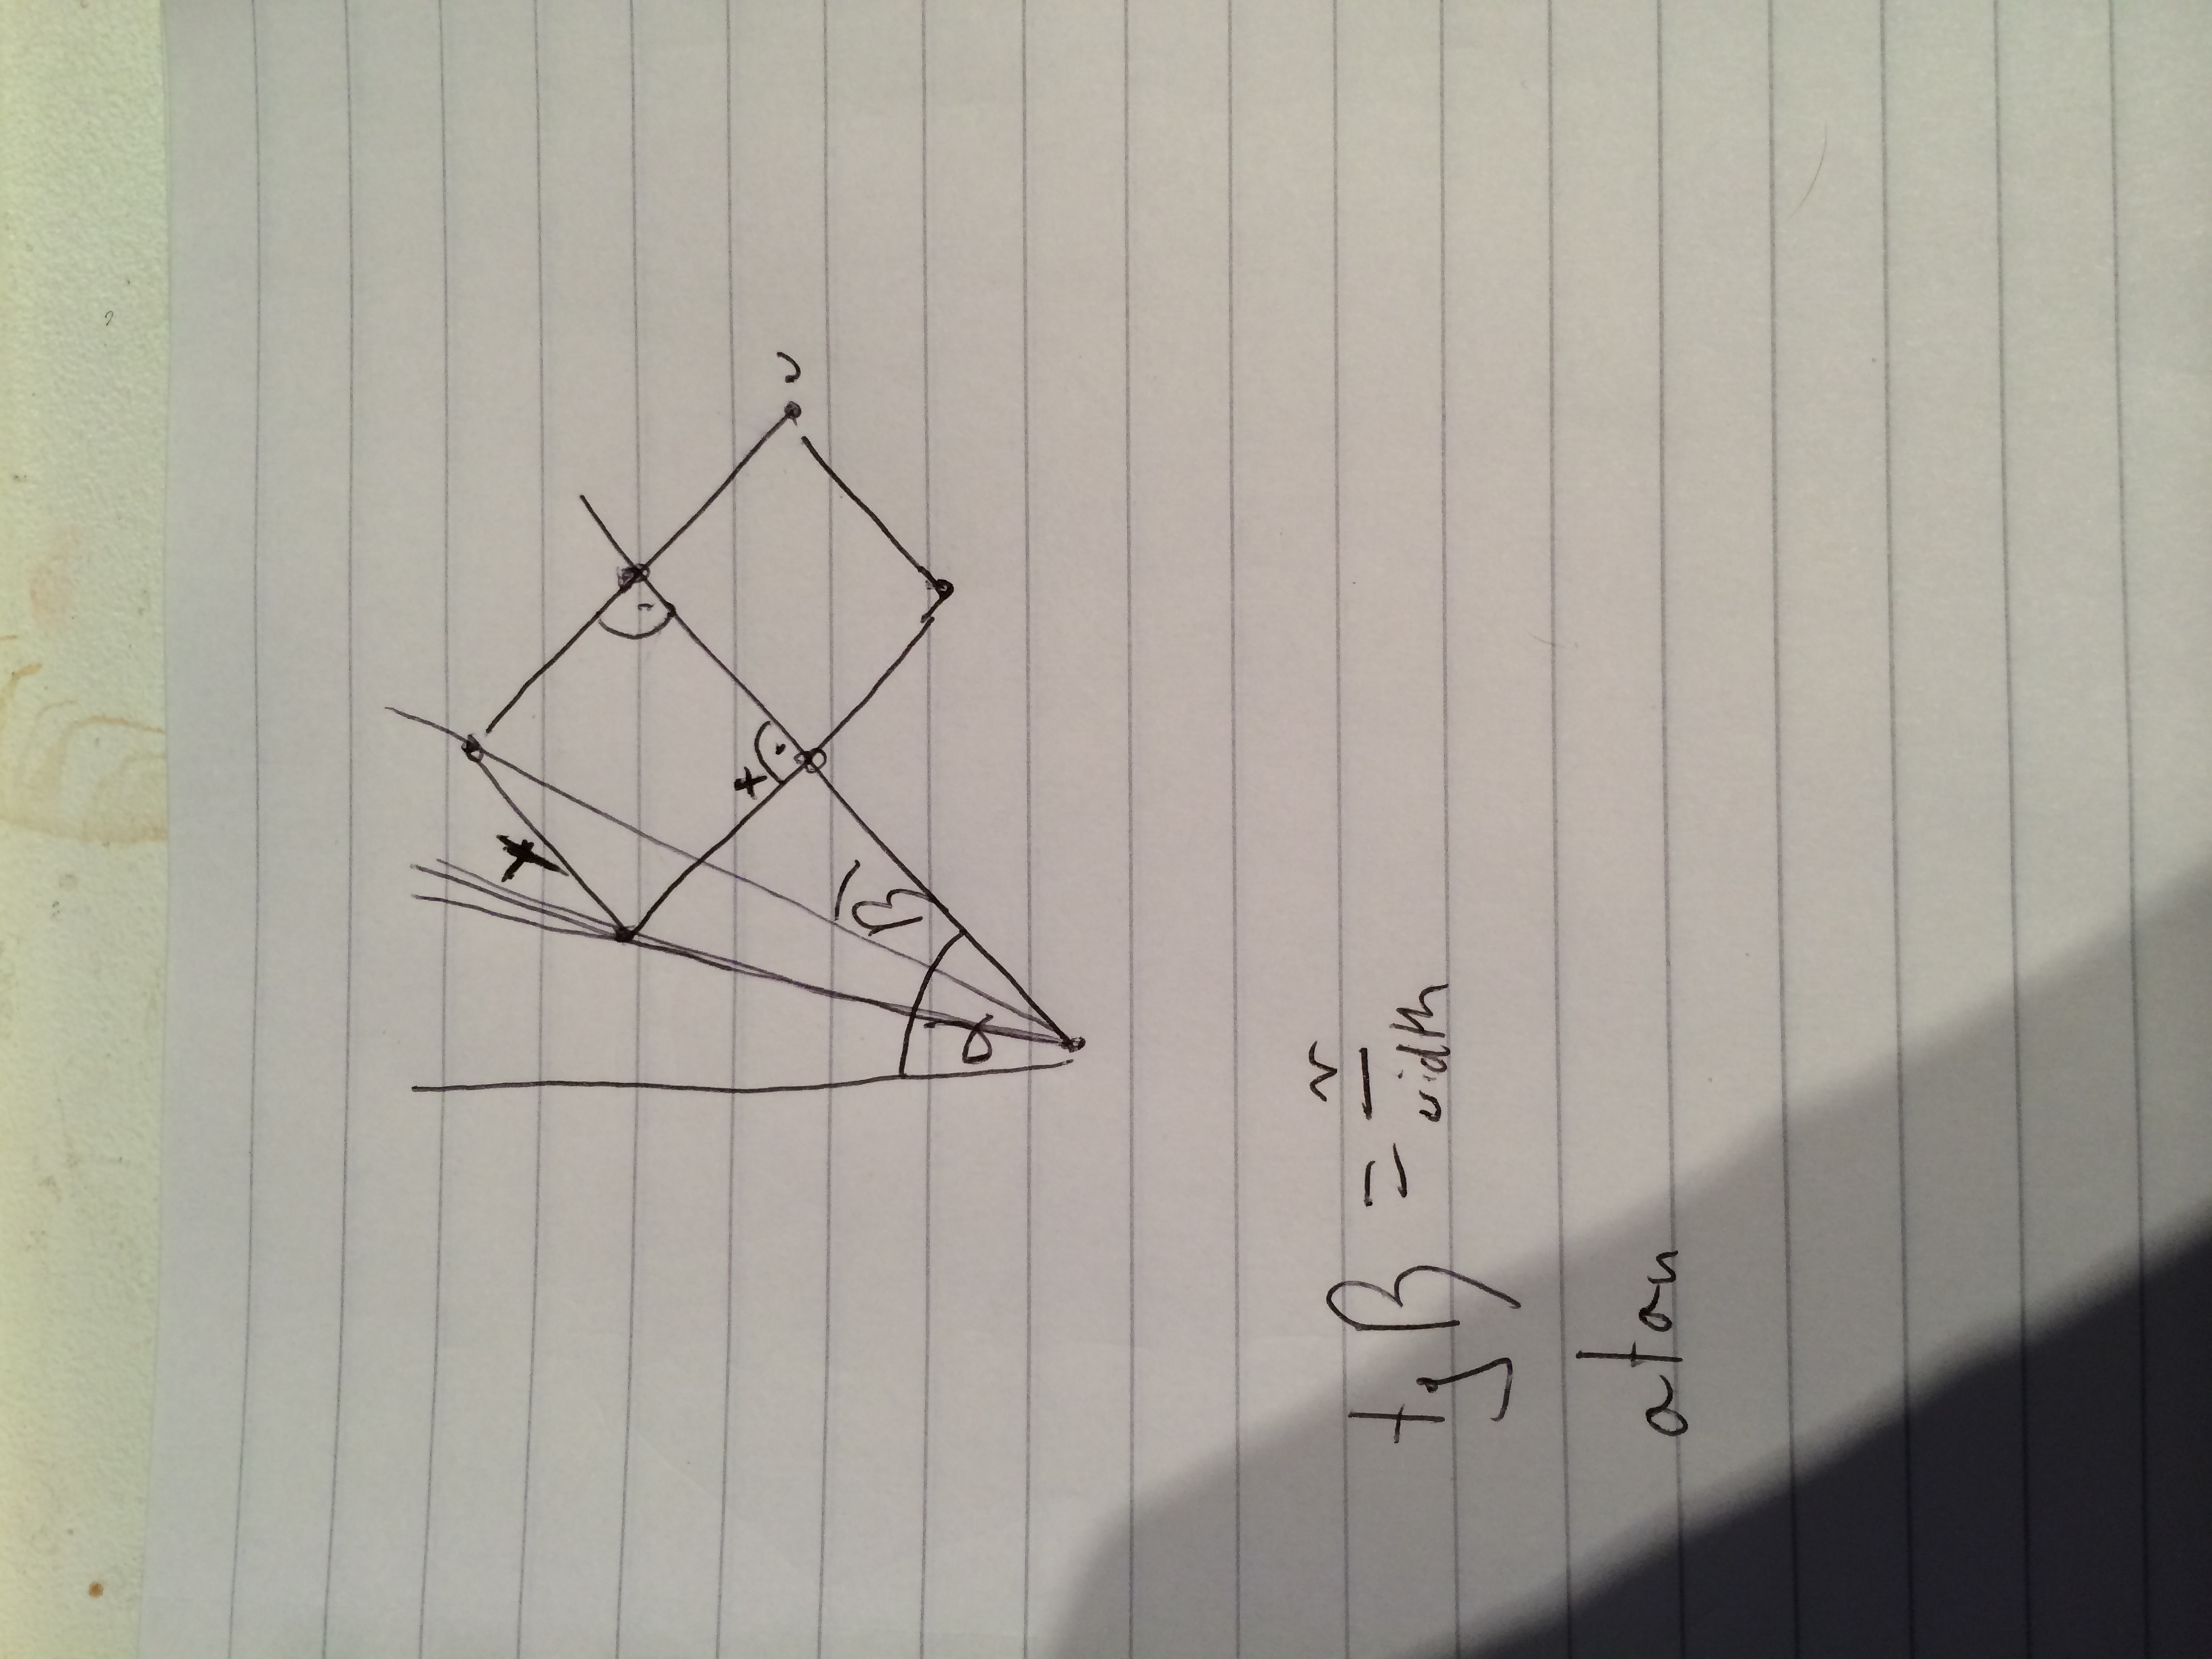 x
x
β
α
tg β = r / width
atan